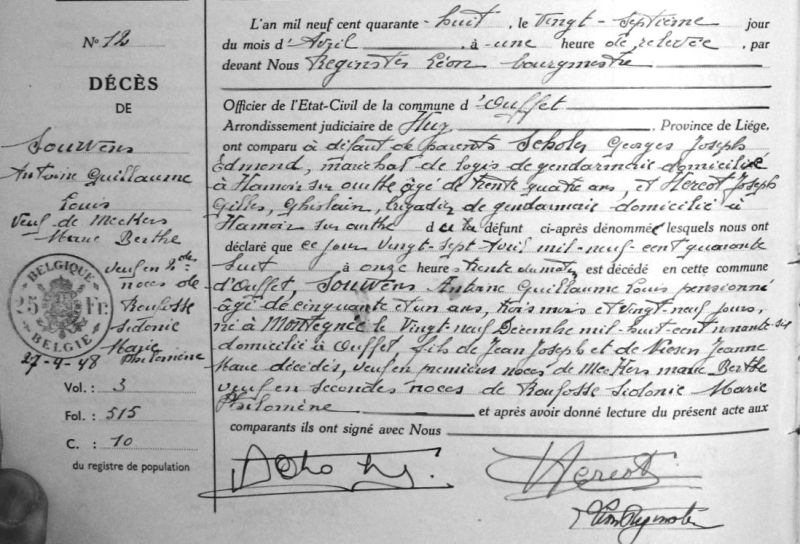 N° 12
DÉCÈS
DE
Souvens
Antoine Guillaume
Louis
Veuf de Meekers
Marie Berthe
veuf en 2des
noces de
Roufosse
Sidonie
Marie
Philomène
BELGIQUE
25 Fr.
BELGIE
27-4-48
Vol. : 3
Fol. : 515
C. : 10
du registre de population
L'an mil neuf cent quarante-huit, le Vingt-septième jour
du mois d'Avril, à une heure de relevée, par
devant Nous Reginster Léon bourgmestre
Officier de l'Etat-Civil de la commune d'Ouffet
Arrondissement judiciaire de Huy, Province de Liége,
ont comparu à défaut de parents Georges Joseph
Edmond, maréchal de logis de gendarmerie domicilié
à Hamoir sur ourthe âgé de trente quatre ans, et Hercot Joseph
Gilles, Ghislain, brigadier de gendarmerie domicilié à
Hamoir sur ourthe du défunt ci-après dénommé lesquels nous ont
déclaré que ce jour vingt-sept Avril mil-neuf-cent quarante
huit à onze heures trente du matin est décédé en cette commune
d'Ouffet, Souvens Antoine Guillaume Louis pensionné
âgé de cinquante et un ans, trois mois et vingt-neuf jours,
né à Montegnée le Vingt-neuf Décembre mil-huit-cent nonante-six
domicilié à Ouffet fils de Jean Joseph et de Jeanne
Marie décédés, veuf en premières noces de Meekers Marie Berthe
veuf en secondes noces de Roufosse Sidonie Marie
Philomène et après avoir donné lecture du présent acte aux
comparants ils ont signé avec Nous
Hercot